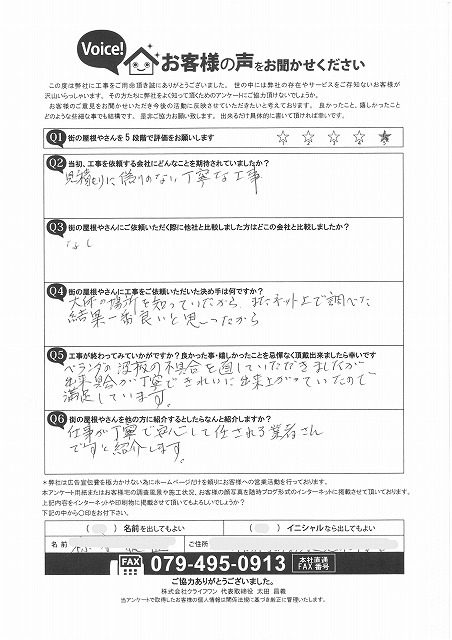 Voice! お客様の声をお聞かせください
この度は弊社に工事をご用命頂き誠にありがとうございました。 世の中には弊社の存在やサービスをご存知ないお客様が
沢山いらっしゃいます。 その方たちに弊社をよく知って頂くためのアンケートにご協力頂けないでしょうか。
お客様のご意見をお聞かせいただき今後の活動に反映させていただきたいと考えております。 良かったこと、嬉しかったこと
どのような些細な事でも結構です。 是非ご協力お願い致します。 出来るだけ具体的に書いて頂ければ幸いです。
Q1 街の屋根やさんを5段階で評価をお願いします ☆ ☆ ☆ ☆ ★
Q2 当初、工事を依頼する会社にどんなことを期待されていましたか?
見積もりに偽りのない丁寧な工事
Q3 街の屋根やさんにご依頼いただく際に他社と比較しました方はどこの会社と比較しましたか?
なし
Q4 街の屋根やさんに工事をご依頼いただいた決め手は何ですか?
大体の場所を知っていたから、またネット上で調べた
結果一番良いと思ったから
Q5 工事が終わってみていかがですか?良かった事・嬉しかったことを忌憚なく頂戴出来ましたら幸いです
ベランダの波板の不具合を直していただきましたが
出来具合が丁寧できれいに出来上がっていたので
満足しています。
Q6 街の屋根やさんを他の方に紹介するとしたらなんと紹介しますか?
仕事が丁寧で安心して任される業者さん
ですと紹介します。
*弊社は広告宣伝費を極力かけない為にホームページだけを頼りにお客様への営業活動を行っております。
本アンケート用紙またはお客様宅の調査風景や施工状況、お客様の顔写真を随時ブログ形式のインターネットに掲載させて頂いております。
上記内容をインターネットや印刷物に掲載させて頂いてもよろしいでしょうか?
下記の中から〇印をお付下さい。
( ) 名前を出してもよい ( ) イニシャルなら出してもよい
名前 ご住所
FAX 079-495-0913 本社直通 FAX番号
ご協力ありがとうございました。
株式会社クライフワン 代表取締役 太田 昌義
当アンケートで取得したお客様の個人情報は関係法規に基づき厳正に管理いたします。